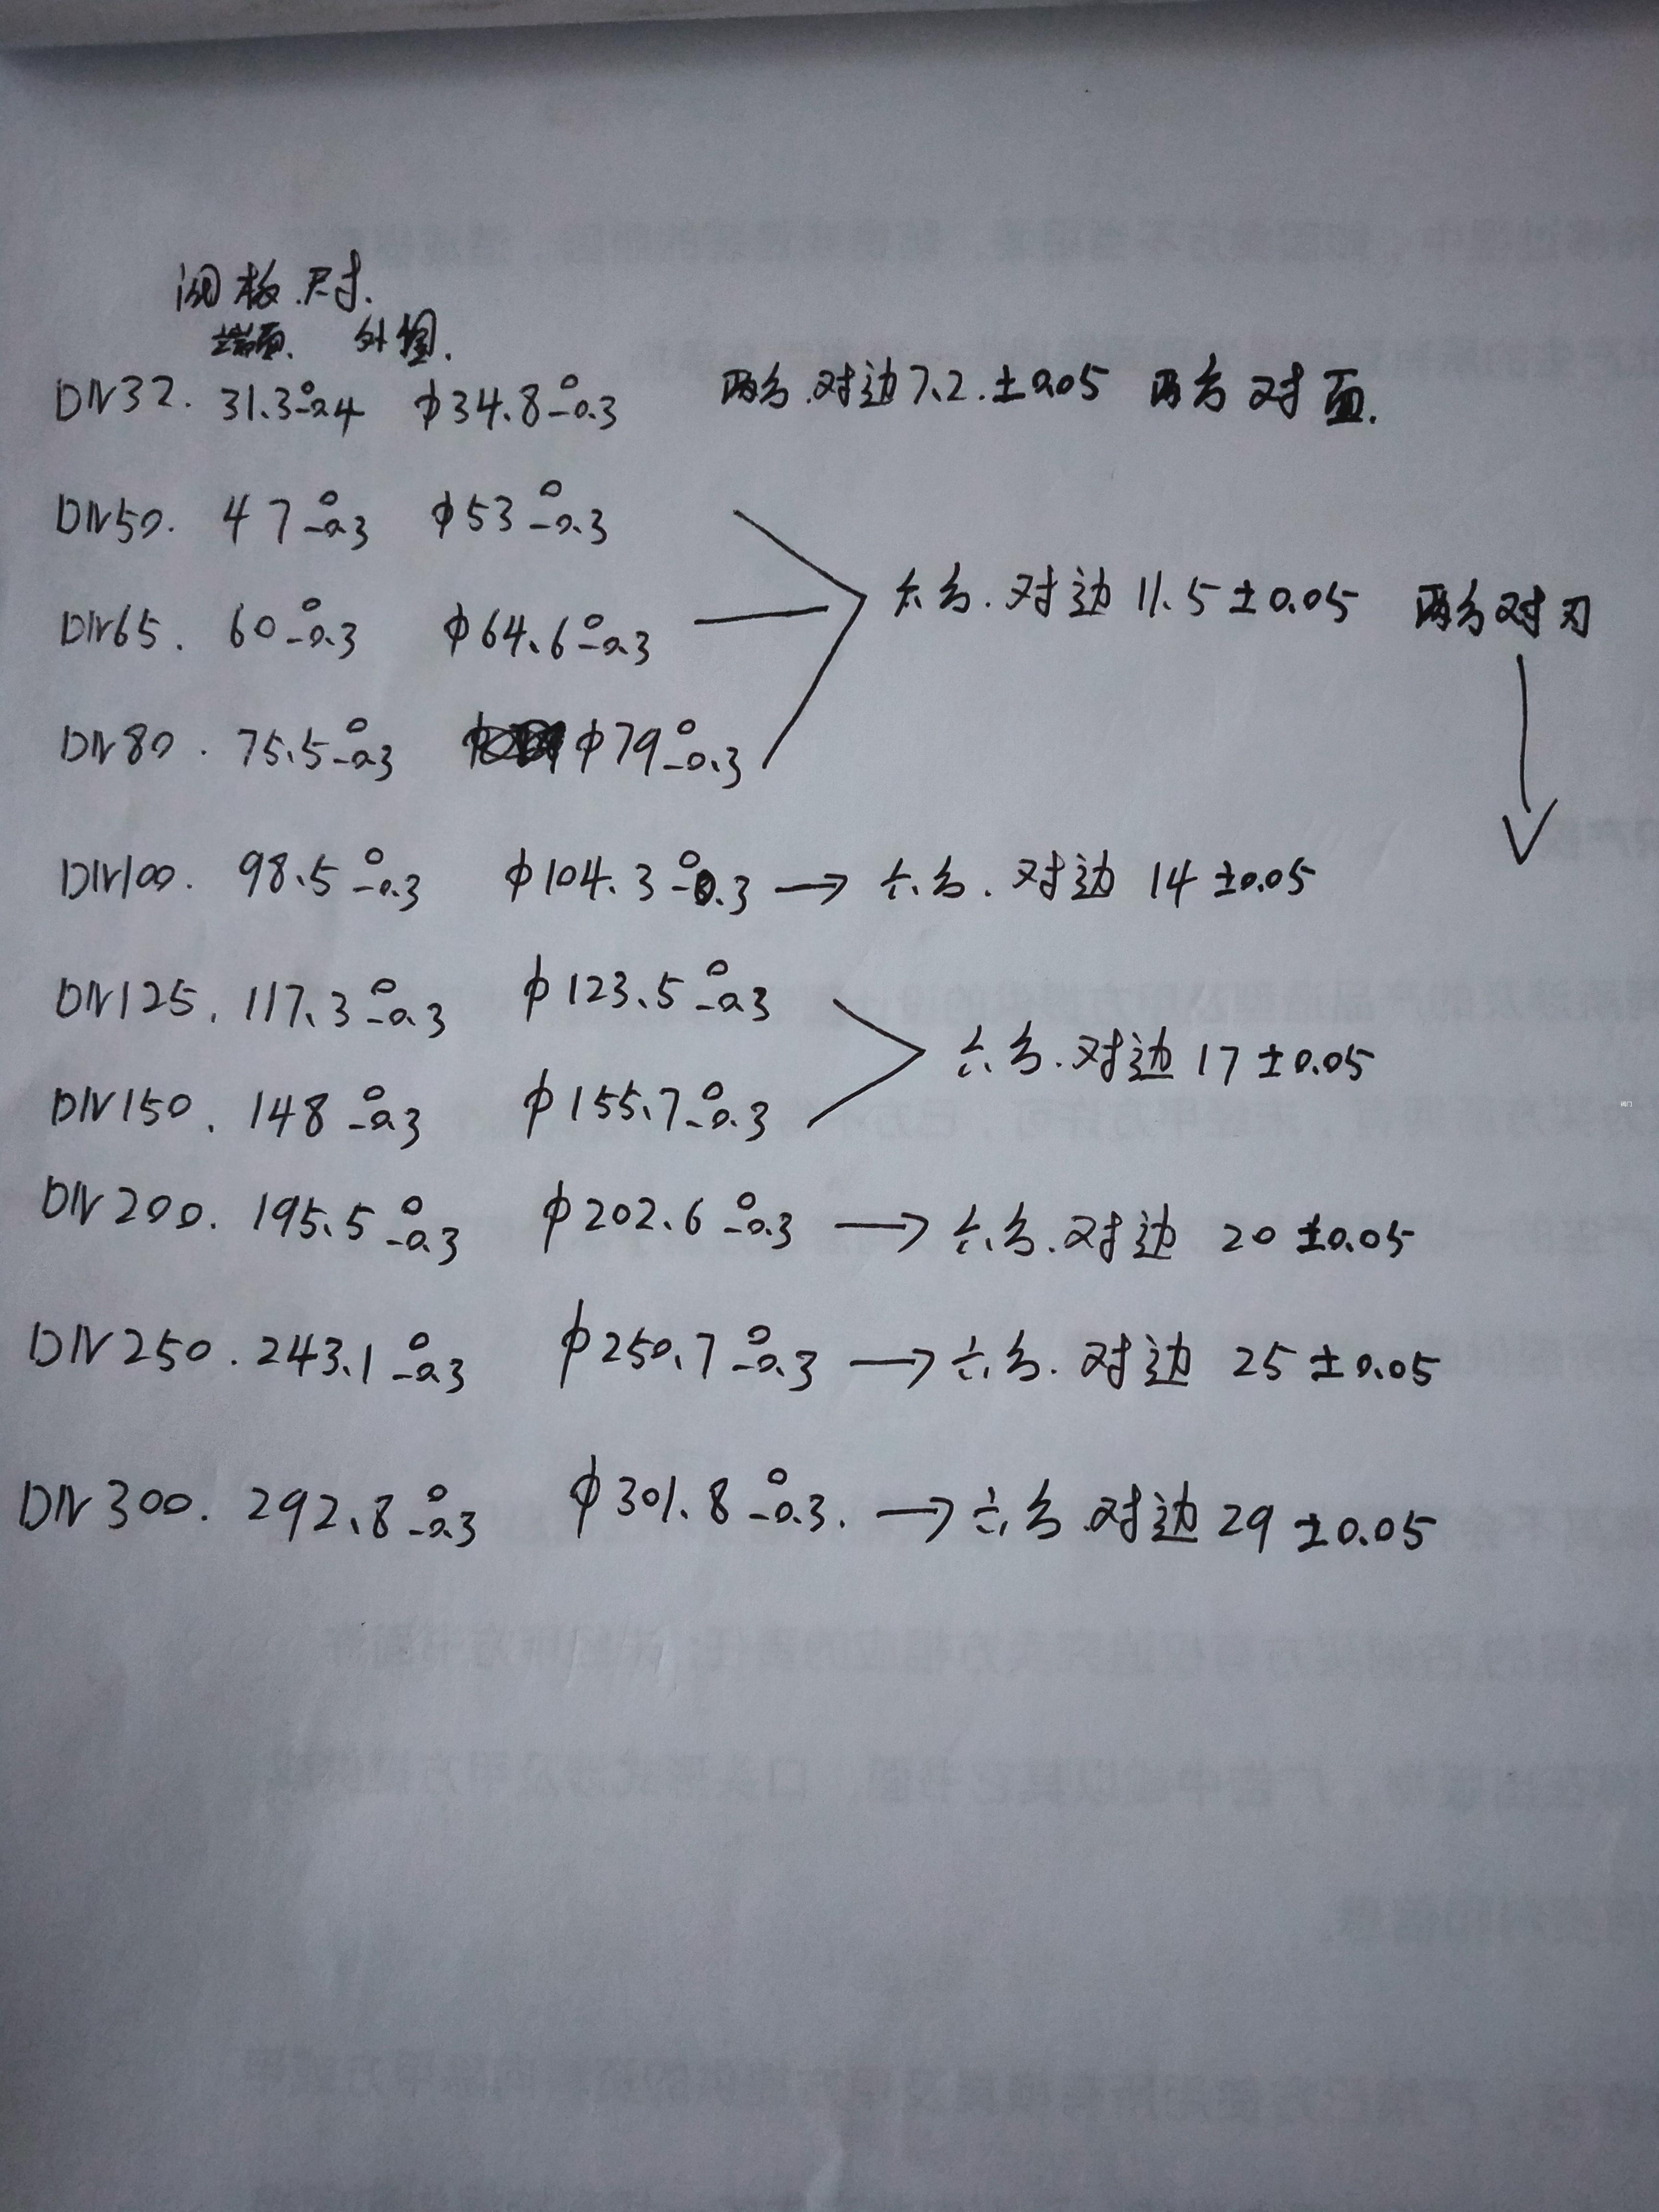 阀板尺寸.
端面. 外圆.
DN32. 31.3 0 -0.4 φ34.8 0 -0.3 两方.对边7.2.±0.05 两方对面.
DN50. 47 0 -0.3 φ53 0 -0.3
DN65. 60 0 -0.3 φ64.6 0 -0.3 六方.对边 11.5±0.05 两方对刃
DN80. 75.5 0 -0.3 φ79 0 -0.3
DN100. 98.5 0 -0.3 φ104.3 0 -0.3 → 六方.对边 14±0.05
DN125. 117.3 0 -0.3 φ123.5 0 -0.3
六方.对边 17±0.05
DN150. 148 0 -0.3 φ155.7 0 -0.3
DN200. 195.5 0 -0.3 φ202.6 0 -0.3 → 六方.对边 20±0.05
DN250. 243.1 0 -0.3 φ250.7 0 -0.3 → 六方.对边 25±0.05
DN300. 292.8 0 -0.3 φ301.8 0 -0.3. → 六方.对边29±0.05